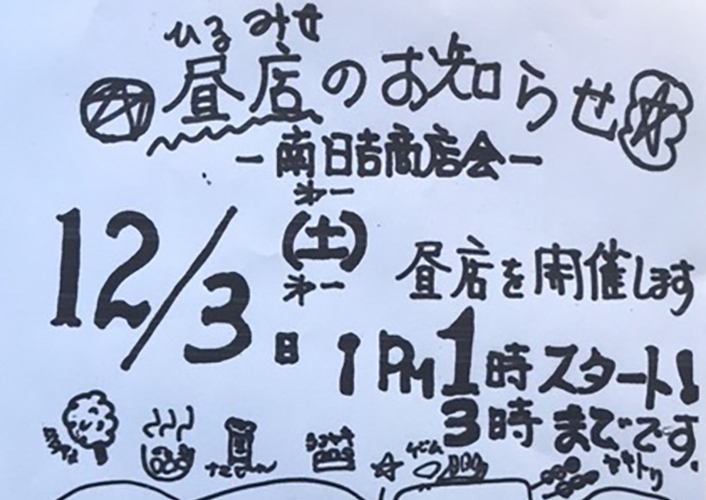 ひるみせ
昼店のお知らせ
－南日吉商店会－
第一
12/3(土)
第一
昼店を開催します
日 1 PM1時スタート!
3時までです。
ゲーム
ヤキトリ